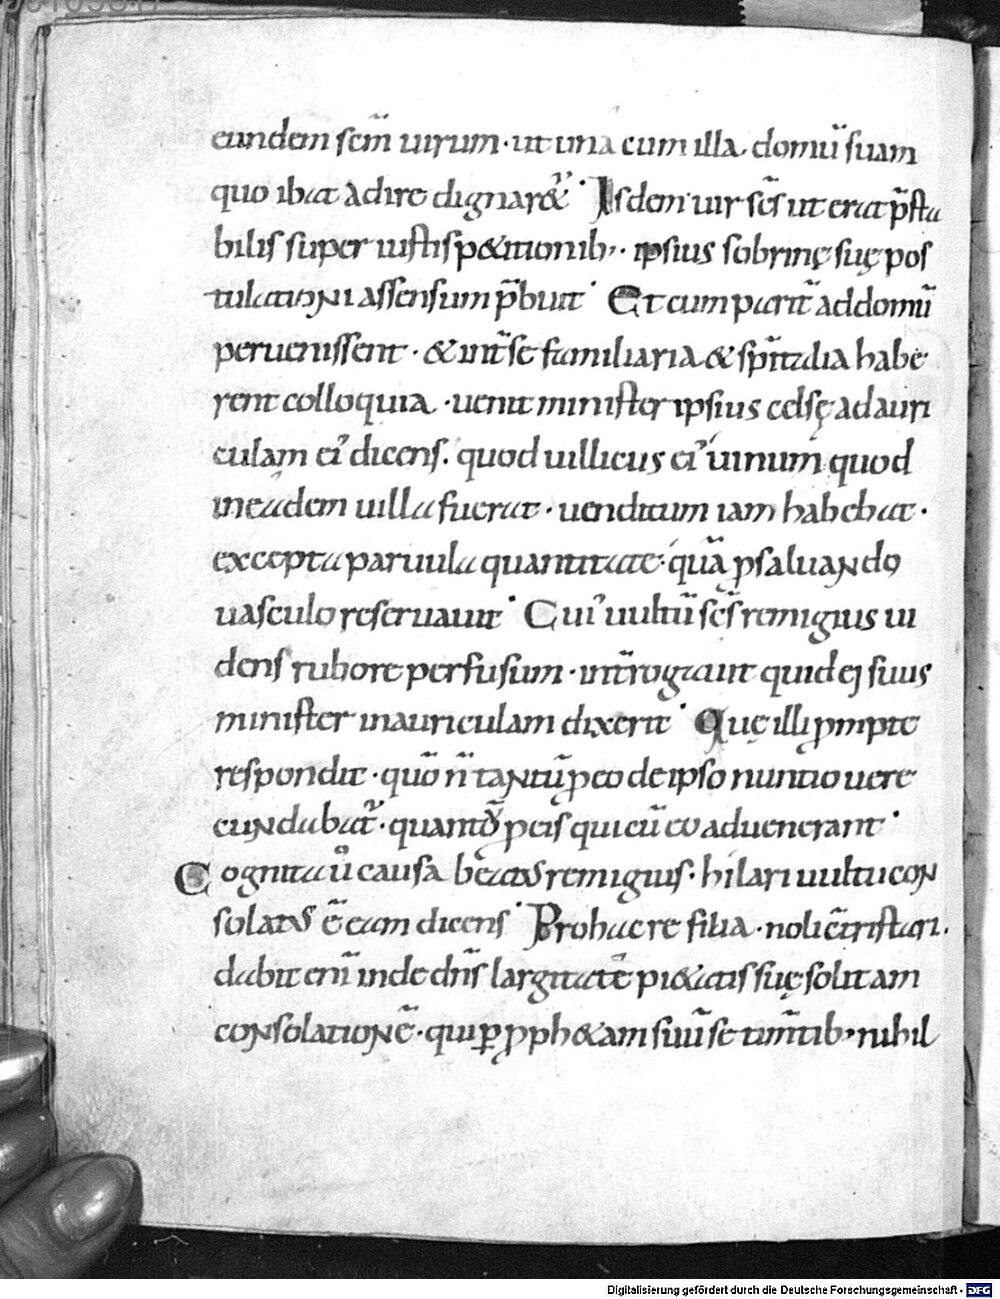 eundem scm̄ uirum · ut una cum illa domū suam
quo ibat adire dignar&̄ . Isdem uir scs̄ ut erat p̄sta
bilis super iustis p&itionib; · ipsius sobrinę suę pos
tulationi assensum p̄buit . Et cum parit̄ ad domū
peruenissent · & int̄ se familiaria & sp̄italia habe
rent colloquia · uenit minister ipsius celsę ad auri
culam ei᾿ dicens . quod uillicus ei᾿ uinum quod
in eadem uilla fuerat · uenditum iam habebat ·
excepta paruula quantitate · quā ꝓ saluando
uasculo reseruauit . Cui᾿ uultū scs̄ remigius ui
dens rubore perfusum · int̄rogauit quid ej suus
minister in auriculam dixerit . Quę illi ꝓmpte
respondit · quō n̄ tantū ꝓ eo de ipso nuntio uere
cundabat᷑ · quantū ꝓ eis qui cū eo aduenerant .
Cognita ů causa beatus remigius · hilari uultu con
solatus ē eam dicens . Proba ere filia · noli c̄tristari .
dabit eni̅ inde dn̄s largitatē pi&atis suę solitam
consolationē · qui ꝑ ꝓph&am suū se tim̄tib; nihil